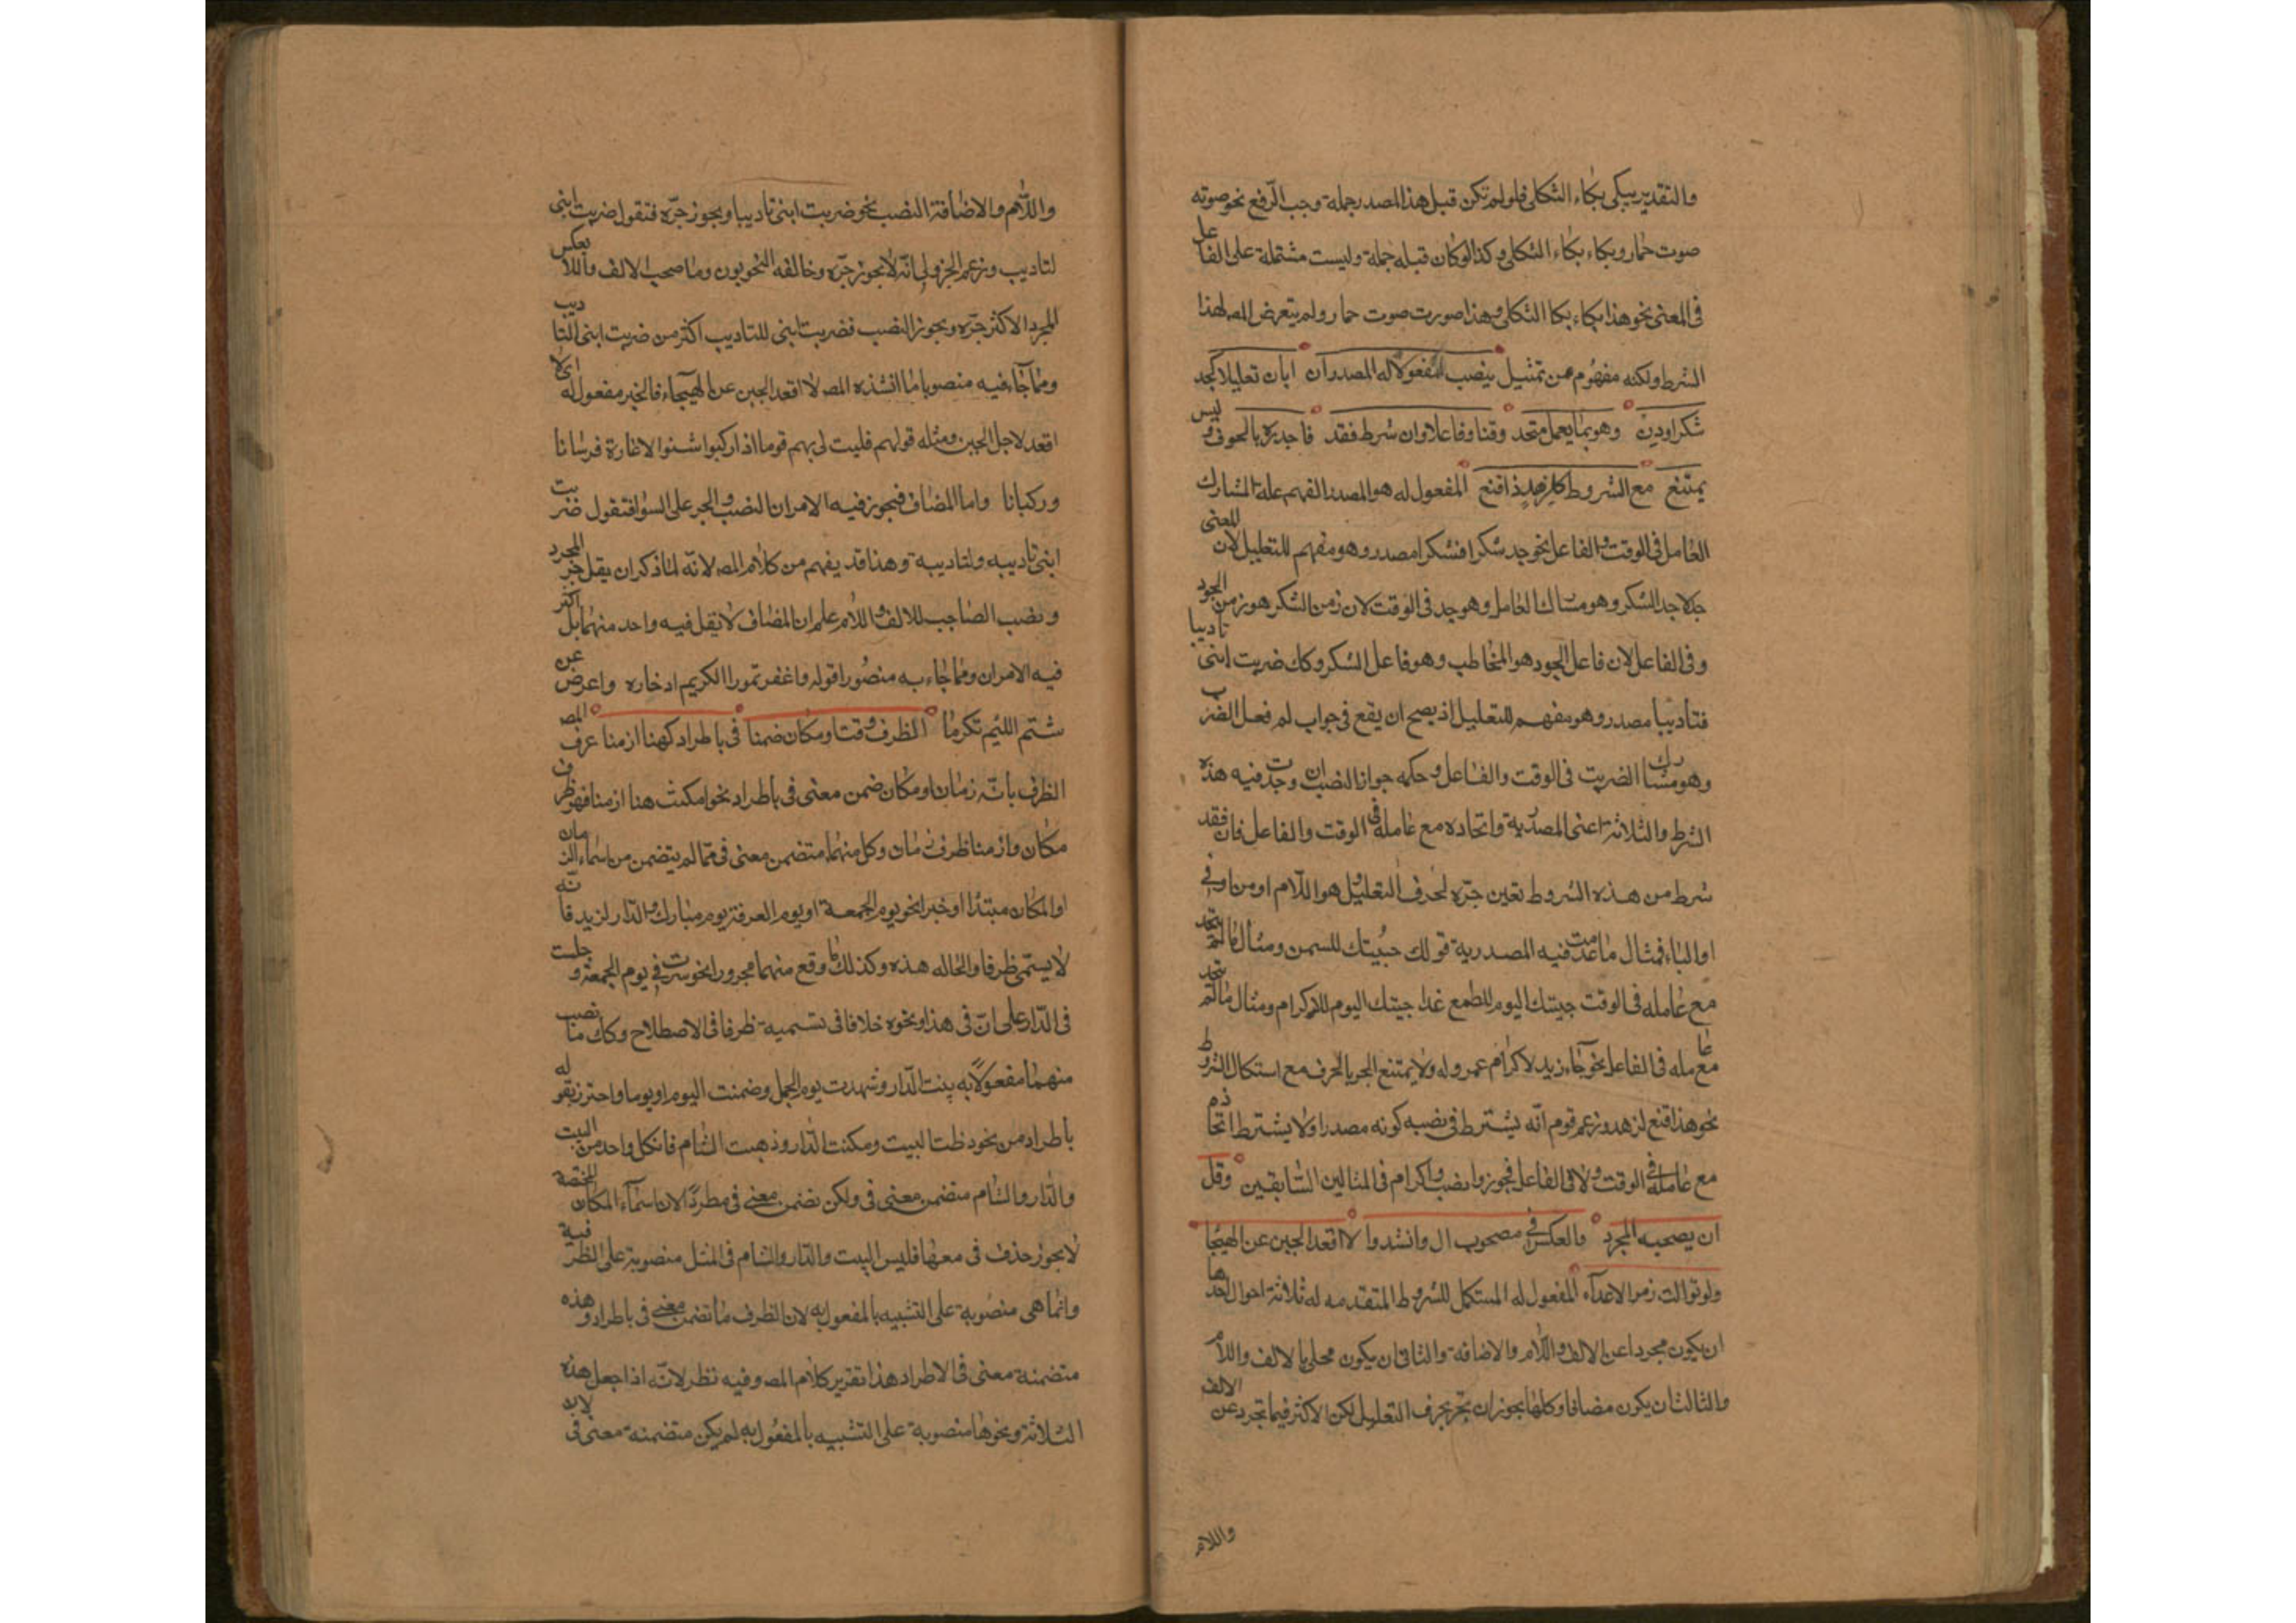 والتقدير يبكى بكاء الثكلى فلو لم تكن قبل هذا المصدر جملة وجب الرفع نحو صوته
صوت حمار وبكاء بكاء الثكلى وكذا لو كان قبله جملة وليست مشتملة على الفاعل
فى المعنى نحو هذا بكاء بكا الثكلى وهذا صوت صوت حمار ولم يتعرض المص لهذا
الشرط ولكنه مفهوم من تمثيل ينصب المفعولا له المصدر ان ابان تعليلا كجد
شكرا ودن وهو بما يعمل متحد وقتا وفاعلا وان شرط فقد فاجرره بالحرف وليس
يمتنع مع الشروط كلزهد ذا قنع المفعول له هو المصدر المفهم علة المشارك
العامل فى الوقت والفاعل نحو جد شكرا فشكرا مصدر وهو مفهم للتعليل لان المعنى
جد لاجل الشكر وهو مشارك العامل وهو جد فى الوقت لان زمن الشكر هو زمن الجود
وفى الفاعل لان فاعل الجود هو المخاطب وهو فاعل الشكر وكك ضربت ابنى تاديبا
فتاديبا مصدر وهو مفهم للتعليل اذ يصح ان يقع فى جواب لم فعل الضرب
وهو مشارك الضربت فى الوقت والفاعل وحكمه جواز النصب ان وجدت فيه هذه
الشرط والثلاثة اعنى المصدرية واتحاده مع عامله فى الوقت والفاعل فان فقد
شرط من هذه الشروط تعين جره لحرف التعليل وهو اللام او من او فى
او الباء فمثال ما عدمت فيه المصدرية قولك جئتك للسمن ومثال ما لم يتحد
مع عامله فى الوقت جيتك اليوم للطمع غدا جيتك اليوم للاكرام ومثال ما لم يتحد
مع عامله فى الفاعل نحو جاء زيد لاكرام عمرو له ولا يمتنع الجر بالحرف مع استكمال الشروط
نحو هذا قنع لزهد وزعم قوم انه يشترط فى نصبه كونه مصدرا ولا يشترط اتحاده
مع عامله فى الوقت ولا فى الفاعل فجوزوا نصب اكرام فى المثالين السابقين وقل
ان يصحبه المجرد والعكس فى مصحوب ال وانشدوا لا اقعد الجبن عن الهيجا
ولو توالت زمر الاعداء المفعول له المستكمل للشروط المتقدمه له ثلاثة احوال احدها
ان يكون مجردا عن الالف واللام والاضافة والثانى ان يكون محلى بالالف واللام
والثالث ان يكون مضافا وكلها يجوز ان تجر بحرف التعليل لكن الاكثر فيما تجرد عن الالف
واللام
واللام والاضافة النصب نحو ضربت ابنى تاديبا ويجوز جره فتقول ضربت ابنى
لتاديب وزعم الجزولى انه لا يجوز جره وخالفه النحويون وما صحب الالف واللا بعكس
المجرد الاكثر جره ويجوز النصب فضربت ابنى للتاديب اكثر من ضربت ابنى التاديب
ومما جاء فيه منصوبا ما انشده المص لا اقعد الجبن عن الهيجاء فالجبر مفعول له اى لا
اقعد لاجل الجبن ومثله قولهم فليت لى بهم قوما اذا ركبوا شنوا الاغارة فرسانا
وركبانا واما المضاف فيجوز فيه الامران النصب والجر على السوا فتقول ضربت
ابنى تاديبه ولتاديبه وهذا قد يفهم من كلام المص لانه لما ذكر ان يقل جر المجرد
ونصب الصاحب للالف واللام علم ان المضاف لا يقل فيه واحد منهما بل اكثر
فيه الامران ومما جاء به منصورا قوله واغفر تمورا الكريم ادخاره واعرض عن
شتم اللئيم تكرما الظرف وقت او مكان ضمنا فى باطراد كهنا ازمنا عرف المص
الظرف بانه زمان او مكان ضمن معنى فى باطراد نحو امكث هنا ازمنا فهو ظرف
مكان وازمنا ظرف زمان وكل منهما متضمن معنى فى مما لم يتضمن من اسماء الزمان
او المكان مبتدا او خبرا نحو يوم الجمعة او يوم العرفة يوم مبارك والدار لزيد فانه
لا يسمى ظرفا والحاله هذه وكذلك ما وقع منهما مجرورا نحو سرت فى يوم الجمعة وجلست
فى الدار على ان فى هذا ونحوه خلافا فى تسميه ظرفا فى الاصطلاح وكك ما نصب
منهما مفعولا به بنيت الدار وشهدت يوم الجمل وضمنت اليوم او يوما واحترز بقوله
باطراد من نحو دخلت البيت ومكنت الدار وذهبت الشام فان كل واحد من البيت
والدار والشام متضمن معنى فى ولكن تضمن معنى فى مطردا لان اسماء المكان المختصة
لا يجوز حذف فى معها فليس البيت والدار والشام فى المثل منصوبة على الظرفية
وانما هى منصوبة على التشبيه بالمفعول به لان الظرف ما تضمن معنى فى باطراد وهذه
متضمنة معنى فى الا طراد هذا تقرير كلام المص وفيه نظر لانه اذا جعل هذه
الثلاثة ونحوها منصوبة على التشبيه بالمفعول به لم يكن متضمنة معنى فى لان